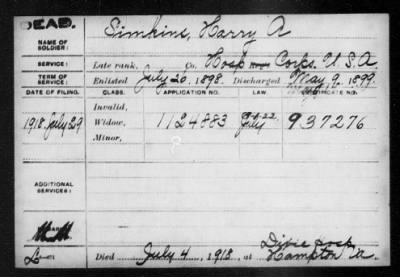 DEAD.
NAME OF SOLDIER: Simkins, Harry A
SERVICE: Late rank, Co. Hosp Corps. U.S.A.
TERM OF SERVICE: Enlisted July 20. 1898. Discharged May 9. 1899.
DATE OF FILING. CLASS. APPLICATION NO. LAW. CERTIFICATE NO.
Invalid,
1918. July 29 Widow, 1124883 937276
Minor,
ADDITIONAL SERVICES:
Died July 4, 1918, at Dixie Hosp
Hampton Va